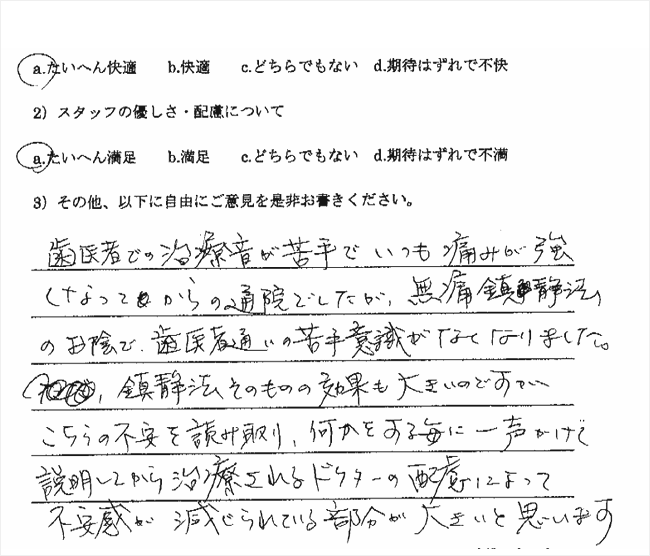 a.たいへん快適 b.快適 c.どちらでもない d.期待はずれで不快
2）スタッフの優しさ・配慮について
a.たいへん満足 b.満足 c.どちらでもない d.期待はずれで不満
3）その他、以下に自由にご意見を是非お書きください。
歯医者での治療音が苦手でいつも痛みが強
くなってからの通院でしたが、無痛鎮静法
のお陰で、歯医者通いの苦手意識がなくなりました。
、鎮静法そのものの効果も大きいのですが
こちらの不安を読み取り、何かをする毎に一声かけて
説明してから治療されるドクターの配慮によって
不安感が減じられている部分が大きいと思います